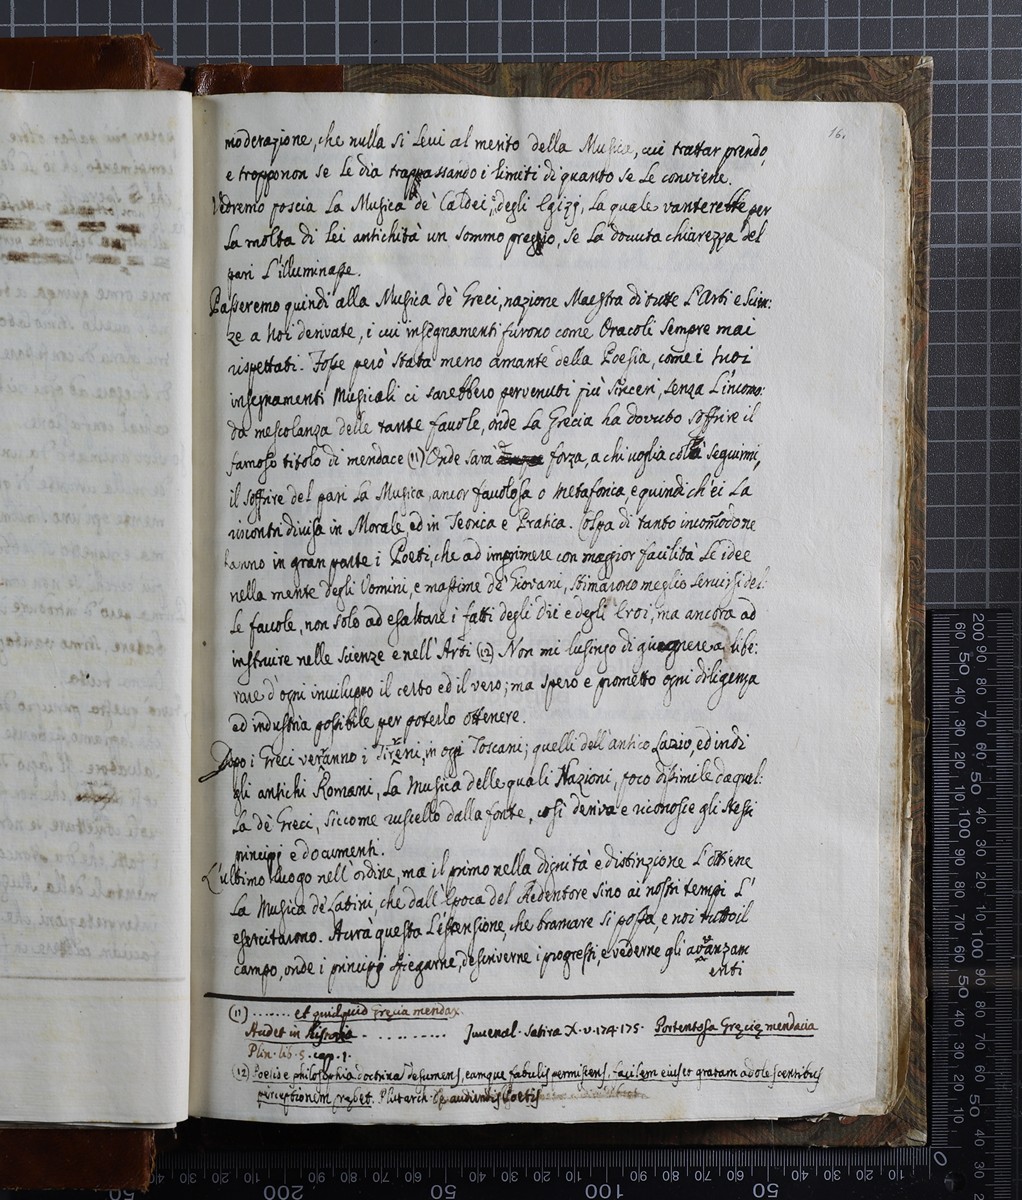 16.
moderazione, che nulla si levi al merito della Musica, cui trattar prendo,
e tropponon se le dia trappassando i limiti di quanto se le conviene.
Vedremo poscia la Musica de' Caldei, degli Egizj, la quale vanterebbe per
la molta di lei antichità un sommo preggio, se la dovuta chiarezza del
pari l'illuminasse.
Passeremo quindi alla Musica dè Greci, nazione Maestra di tutte l'Arti e Scien:
ze a noi derivate, i cui insegnamenti furono come Oracoli sempre mai
rispettati. Fosse però stata meno amante della Poesia, come i suoi
insegnamenti Musicali ci sarebbero pervenuti più sinceri, senza l'incomo:
da mescolanza delle tante favole, onde la Grecia ha dovuto soffrire il
famoso titolo di mendace (11) Onde sarà forza, a chi voglia colà seguirmi,
il soffrire del pari la Musica, ancor favolosa o metaforica, e quindi ch'ei la
riscontri divisa in Morale, ed in Teorica e Pratica. Colpa di tanto incomodo ne
hanno in gran parte i Poeti, che ad imprimere con maggior facilità le idee
nella mente degli Uomini, e massime de' Giovani, stimarono meglio servirsi del:
le favole, non solo ad esaltare i fatti degli Dii e degli Eroi, ma ancora ad
instruire nelle scienze e nell'Arti (12) Non mi lusingo di giugnere a libe:
rare d'ogni inviluppo il certo ed il vero; ma spero e prometto ogni diligenza
ed industria possibile per poterlo ottenere.
Dopo i Greci verranno i Tirreni, in oggi Toscani; quelli dell'antico Lazio, ed indi
gli antichi Romani, la Musica delle quali Nazioni, poco dissimile da quel:
la dè Greci, siccome ruscello dalla fonte, così deriva e riconosce gli stessi
principj e documenti.
L'ultimo luogo nell'ordine, ma il primo nella dignità e distinzione l'ottiene
la Musica de' Latini, che dall'Epoca del Redentore sino ai nostri tempi l'
esercitarono. Avrà questa l'estensione, che bramare si possa, e noi tutto il
campo, onde i principj spiegarne, descriverne i progressi, e vederne gli avvanzam
enti
(11) ........ et quidquid Gręcia mendax
Audet in historia .......... Juvenal. Satira X. v. 174. 175. Portentosa Gręcię mendacia
Plin. lib. 5. cap. 1.
(12) Poesis e philosophia doctrina desumens, eamque fabulis permiscens, facilem ejus et gratam adolescentibus
perceptionem prębet. Plutarch. de audiendis Poetis